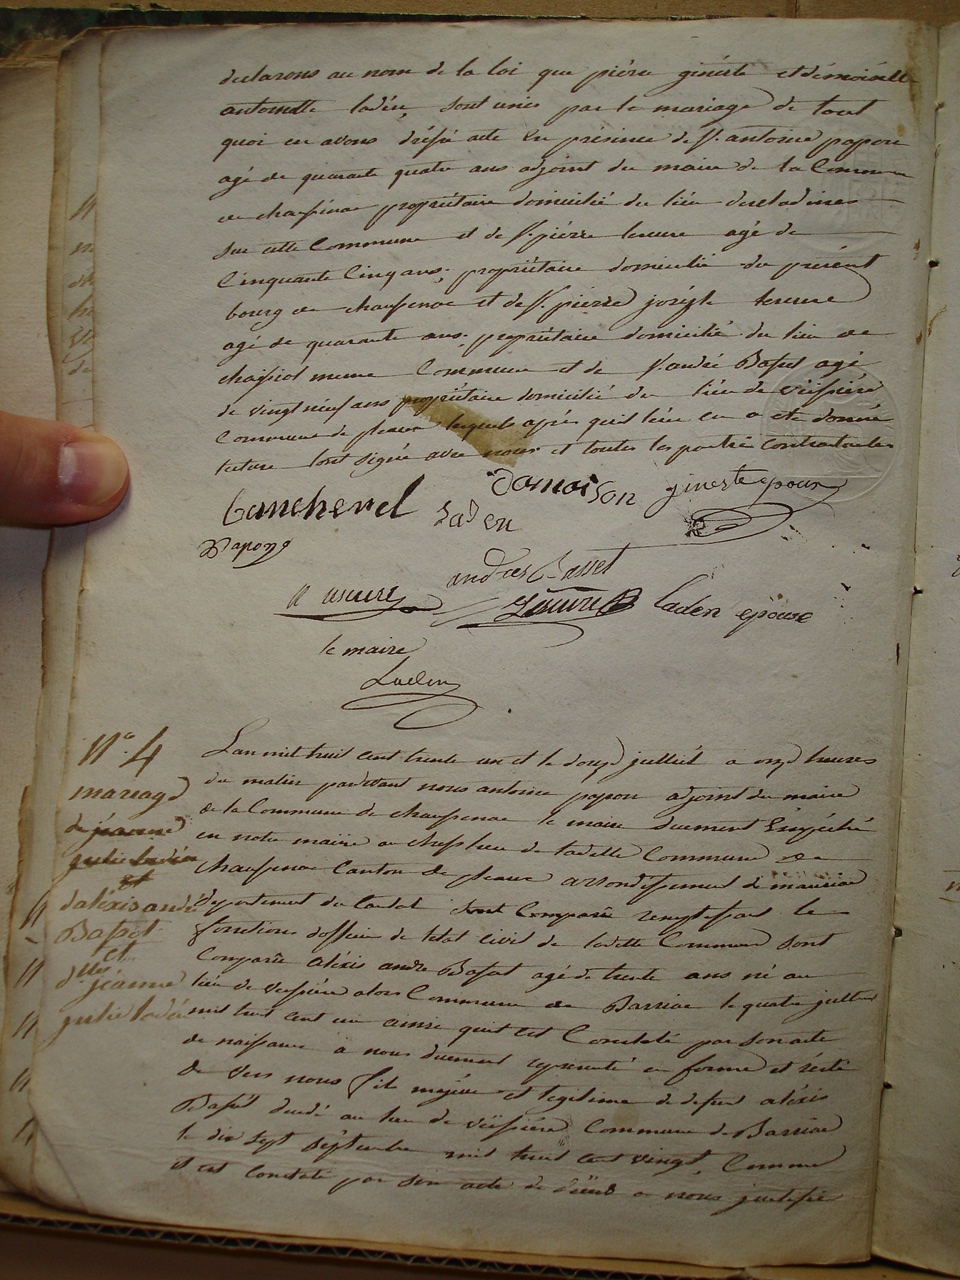 declarons au nom de la loi que pière gineste et demoiselle
antoinette ladën, sont unis par le mariage de tout
quoi en avons dréssé acte en présence de Sr. antoine papon
agé de quarante quatre ans adjoint du maire de la Commune
de chaussenac propriétaire domicilié du lieu
sur cette Commune et de Sr. pièrre lescure agé de
Cinquante Cinq ans, propriétaire domicilié du présent
bourg de chaussenac et de Sr. pierre joséph lescure
agé de quarante ans, propriétaire domicilié du lieu de
meme Commune et de Sr. andré Basset agé
de vingt neuf ans propriétaire domicilié du lieu de véissière
Commune de pleaux lequels après qu'il leur en a eté donné
lecture l'ont signé avec nous et toutes les parties contractantes
domaison gineste epoux
Laden
Papon
andres Basset
Lescure Laden epouse
le maire
Laden
N°. 4
mariage
de jeanne
julie ladën
et
d'aléxis andré
Basset
et
dlle jéanne
julie ladën
L'an mil huit cent trente un et le douze juilliét a onze heures
du matin pardevant nous antoine papon adjoint du maire
de la Commune de chaussenac le maire duement empéché
en notre mairie au chef lieu de ladette Commune de
chaussenac Canton de pleaux arrondissement de mauriac
département du Cantal sont Comparûs remplissant le
fonctions d'officier de l'etat civil de ladette Commune sont
Comparûs aléxis andre Basset agé de trente ans né au
lieu de veissière alors Commune de Barriac le quatre juillet
mil huit cent un ainsi qu'il est Constaté par son acte
de naissance à nous duement représenté en forme et
de vers nous fils majeur et legitime de defunt aléxis
Basset décédé au lieu de véissière Commune de Barriac
le dix sept séptembre mil huit cent vingt, Comme
il est constaté par son acte de décès a nous justifié